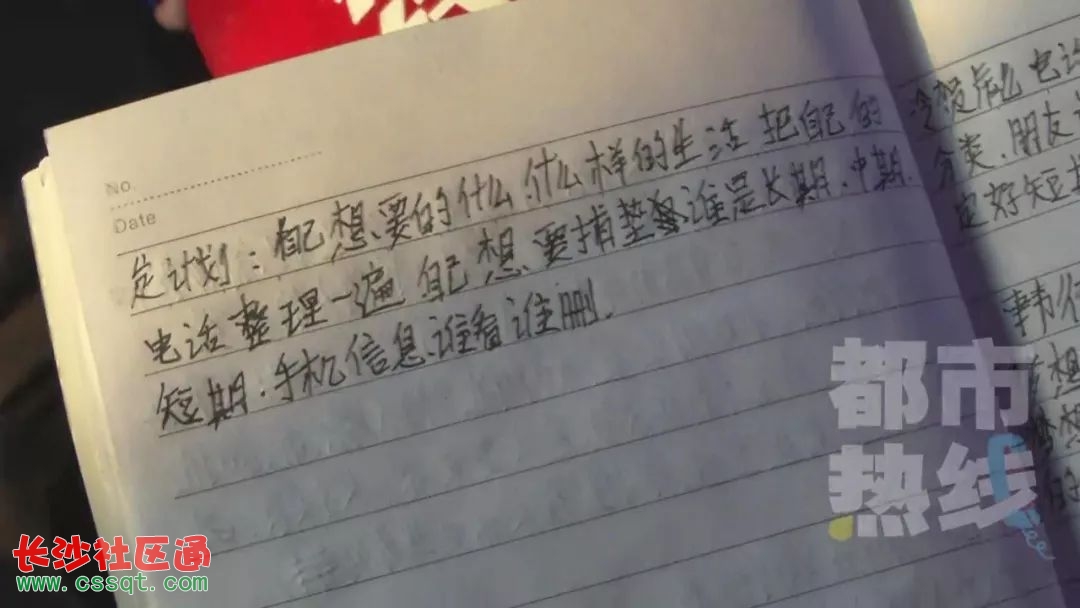 No.
Date
定计划：自己想要的什么.什么样的生活 把自己的
电话整理一遍 自己想要 谁是长期.中期.
短期.手机信息.谁看谁删.
电话
分类.朋友
定好短期
事 行
想
的
都市
热线
长沙社区通
www.cssqt.com